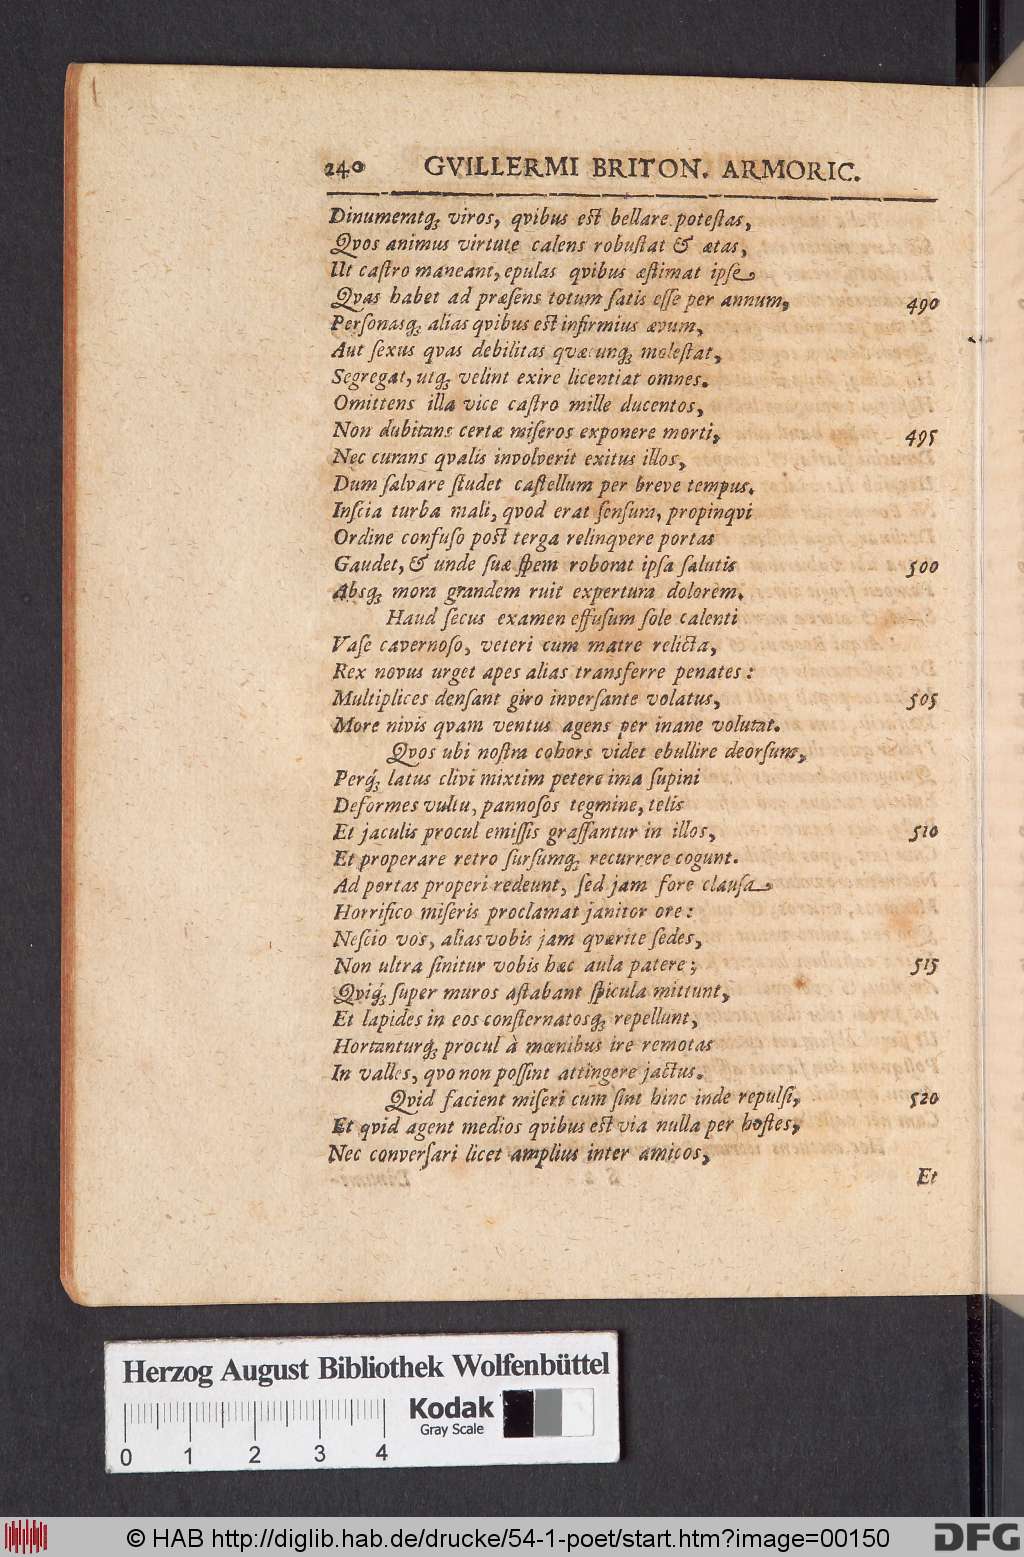 240 GVILLERMI BRITON. ARMORIC.
Dinumeratq́; viros, qvibus est bellare potestas,
Qvos animus virtute calens robustat & ætas,
Ut castro maneant, epulas qvibus æstimat ipse
Qvas habet ad præsens totum satis esse per annum, 490
Personasq́; alias qvibus est infirmius ævum,
Aut sexus qvas debilitas qvæcunq́; molestat,
Segregat, utq́; velint exire licentiat omnes.
Omittens illa vice castro mille ducentos,
Non dubitans certæ miseros exponere morti, 495
Nec curans qvalis involverit exitus illos,
Dum salvare studet castellum per breve tempus.
Inscia turba mali, qvod erat sensura, propinqvi
Ordine confuso post terga relinqvere portas
Gaudet, & unde suæ spem roborat ipsa salutis 500
Absq́; mora grandem ruit expertura dolorem.
Haud secus examen effusum sole calenti
Vase cavernoso, veteri cum matre relicta,
Rex novus urget apes alias transferre penates:
Multiplices densant giro inversante volatus, 505
More nivis qvam ventus agens per inane volutat.
Qvos ubi nostra cohors videt ebullire deorsum,
Perq́; latus clivi mixtim petere ima supini
Deformes vultu, pannosos tegmine, telis
Et jaculis procul emissis grassantur in illos, 510
Et properare retro sursumq́; recurrere cogunt.
Ad portas properi redeunt, sed jam fore clausa
Horrifico miseris proclamat janitor ore:
Nescio vos, alias vobis jam qværite sedes,
Non ultra sinitur vobis hæc aula patere; 515
Qviq́; super muros astabant spicula mittunt,
Et lapides in eos consternatosq́; repellunt,
Hortanturq́; procul à mœnibus ire remotas
In valles, qvo non possint attingere jactus.
Qvid facient miseri cum sint hinc inde repulsi, 520
Et qvid agent medios qvibus est via nulla per hostes,
Nec conversari licet amplius inter amicos,
Et
Herzog August Bibliothek Wolfenbüttel
Kodak
Gray Scale
0 1 2 3 4
© HAB http://diglib.hab.de/drucke/54-1-poet/start.htm?image=00150
DFG